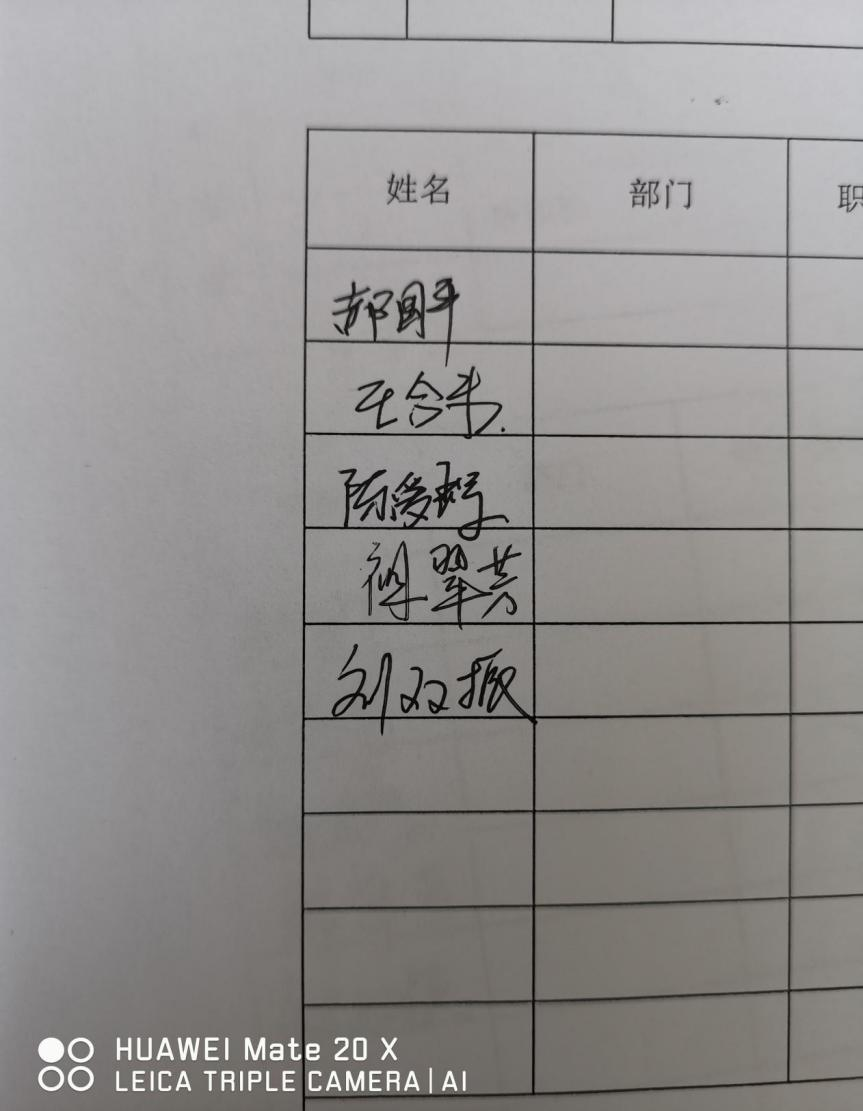 姓名 部门 职
郝国平
王合米
陈爱
翠芳
刘双振
HUAWEI Mate 20 X
LEICA TRIPLE CAMERA | AI